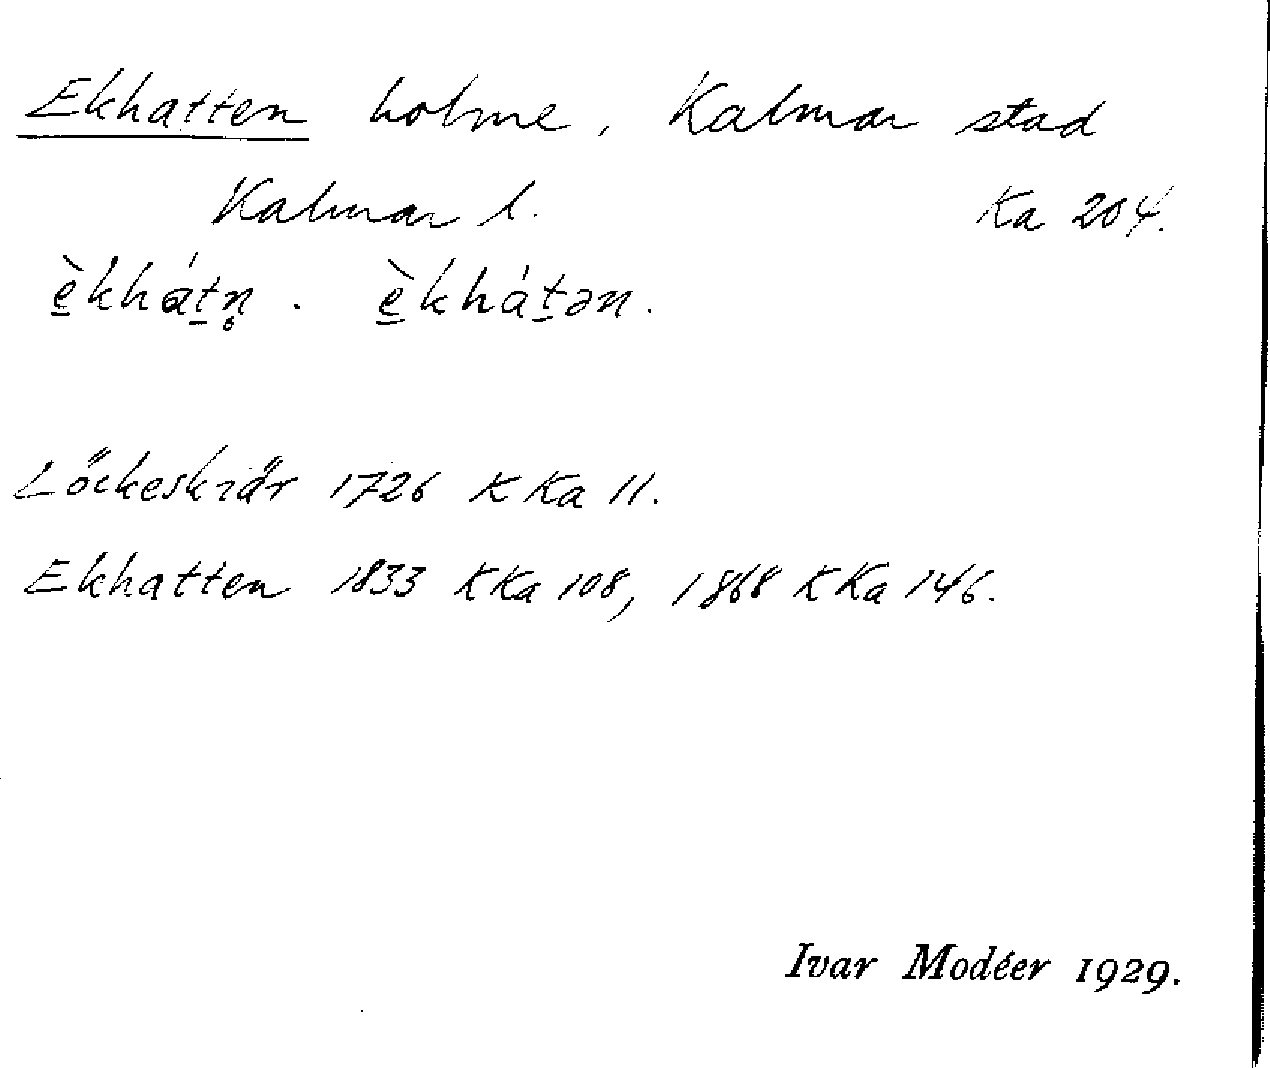 Ekhatten holme, Kalmar stad
Kalmar l. Ka 204.
è̱khát̲n̥. è̱khát̲ən.
Löckeskiär 1726 K Ka 11.
Ekhatten 1833 K Ka 108, 1868 K Ka 146.
Ivar Modéer 1929.